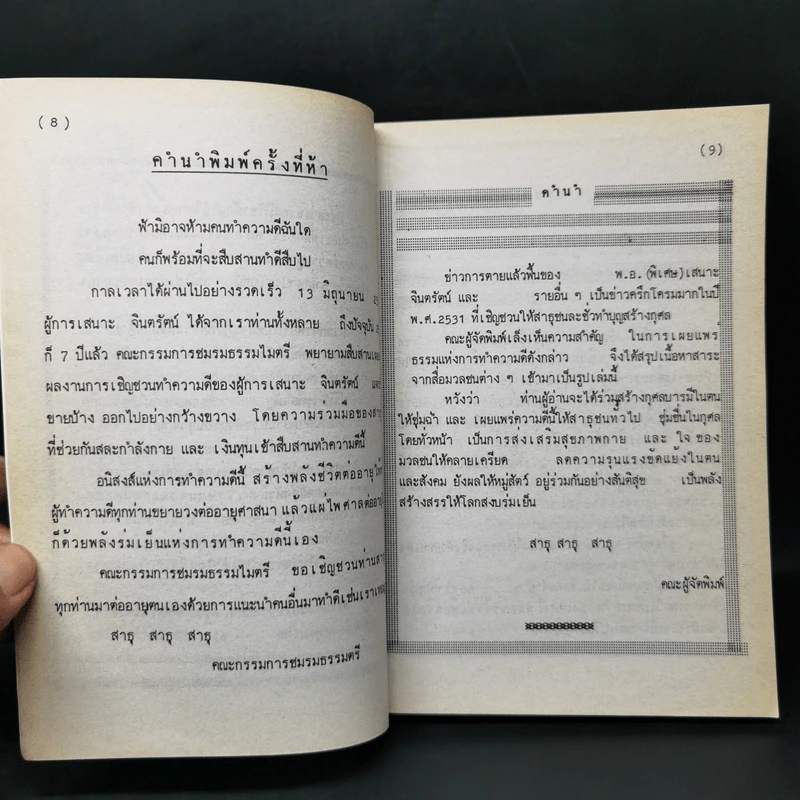 (8)
คำนำพิมพ์ครั้งที่ห้า
ฟ้ามิอาจห้ามคนทำความดีฉันใด
คนก็พร้อมที่จะสืบสานทำดีสืบไป
กาลเวลาได้ผ่านไปอย่างรวดเร็ว 13 มิถุนายน
ผู้การเสนาะ จินตรัตน์ ได้จากเราท่านทั้งหลาย ถึงปัจจุบัน
ก็ 7 ปีแล้ว คณะกรรมการชมรมธรรมไมตรี พยายามสืบสาน
ผลงานการเชิญชวนทำความดีของผู้การเสนาะ จินตรัตน์
ขายบ้าง ออกไปอย่างกว้างขวาง โดยความร่วมมือของ
ที่ช่วยกันสละกำลังกาย และ เงินทุนเข้าสืบสานทำความดีนี้
อนิสงส์แห่งการทำความดีนี้ สร้างพลังชีวิตต่ออายุ
ผู้ทำความดีทุกท่านขยายวงต่ออายุศาสนา แล้วแผ่ไพศาลต่ออายุ
ก็ด้วยพลังร่มเย็นแห่งการทำความดีนี้เอง
คณะกรรมการชมรมธรรมไมตรี ขอเชิญชวนท่าน
ทุกท่านมาต่ออายุตนเองด้วยการแนะนำคนอื่นมาทำดีเช่นเรา
สาธุ สาธุ สาธุ
คณะกรรมการชมรมธรรมตรี
(9)
คำนำ
ข่าวการตายแล้วฟื้นของ พ.อ.(พิเศษ)เสนาะ
จินตรัตน์ และ รายอื่น ๆ เป็นข่าวครึกโครมมากในปี
พ.ศ.2531 ที่เชิญชวนให้สาธุชนละชั่วทำบุญสร้างกุศล
คณะผู้จัดพิมพ์เล็งเห็นความสำคัญ ในการเผยแพร่
ธรรมแห่งการทำความดีดังกล่าว จึงได้สรุปเนื้อหาสาระ
จากสื่อมวลชนต่าง ๆ เข้ามาเป็นรูปเล่มนี้
หวังว่า ท่านผู้อ่านจะได้ร่วมสร้างกุศลบารมีในตน
ให้ชุ่มฉ่ำ และ เผยแพร่ความดีนี้ให้สาธุชนทั่วไป ชุ่มชื่นในกุศล
โดยทั่วหน้า เป็นการส่งเสริมสุขภาพกาย และ ใจของ
มวลชนให้คลายเครียด ลดความรุนแรงขัดแย้งในตน
และสังคม ยังผลให้หมู่สัตว์ อยู่ร่วมกันอย่างสันติสุข เป็นพลัง
สร้างสรรให้โลกสงบร่มเย็น
สาธุ สาธุ สาธุ
คณะผู้จัดพิมพ์